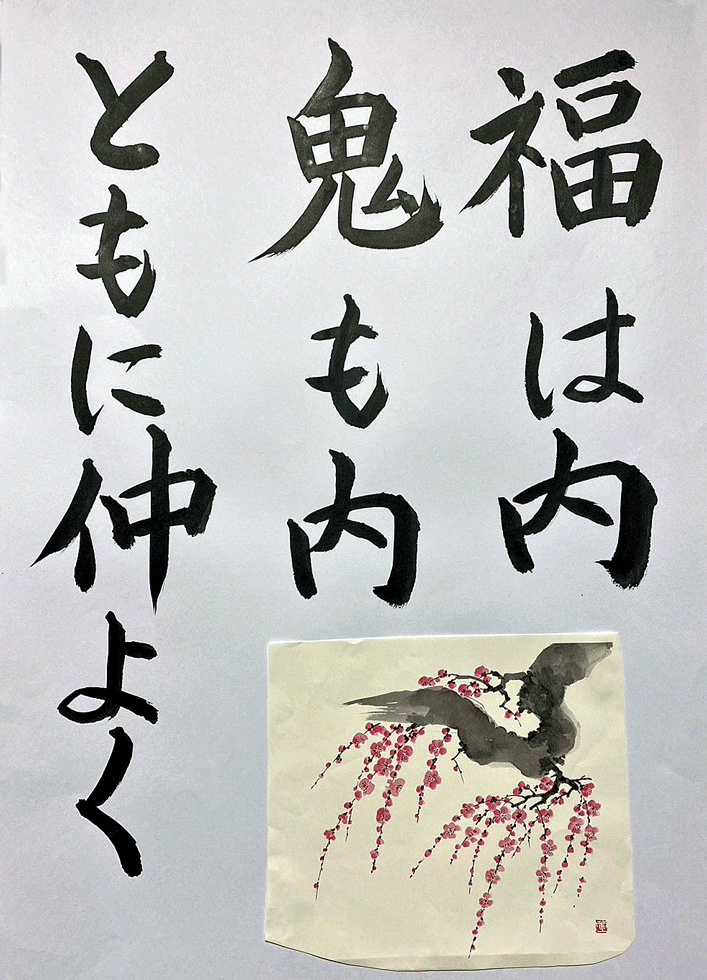 福は内
鬼も内
ともに仲よく